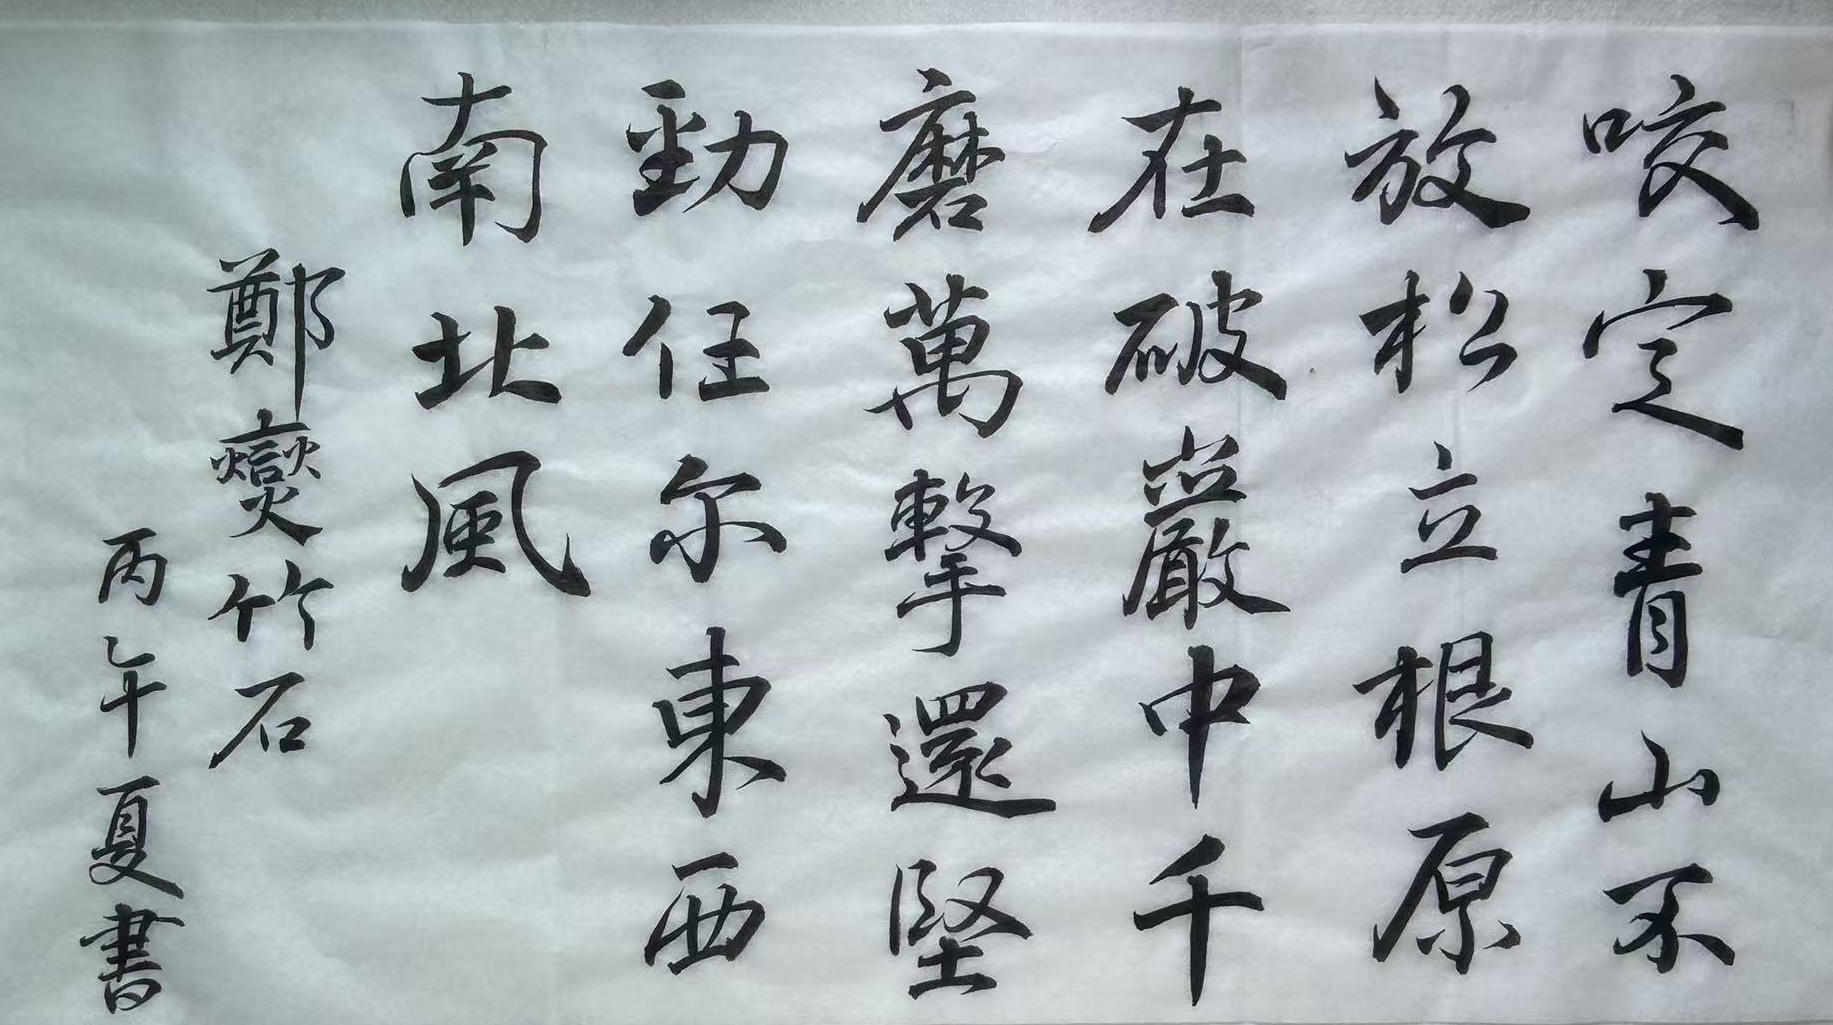 咬定青山不
放松立根原
在破巖中千
磨萬擊還堅
勁任尔東西
南北風
鄭燮竹石
丙午夏書